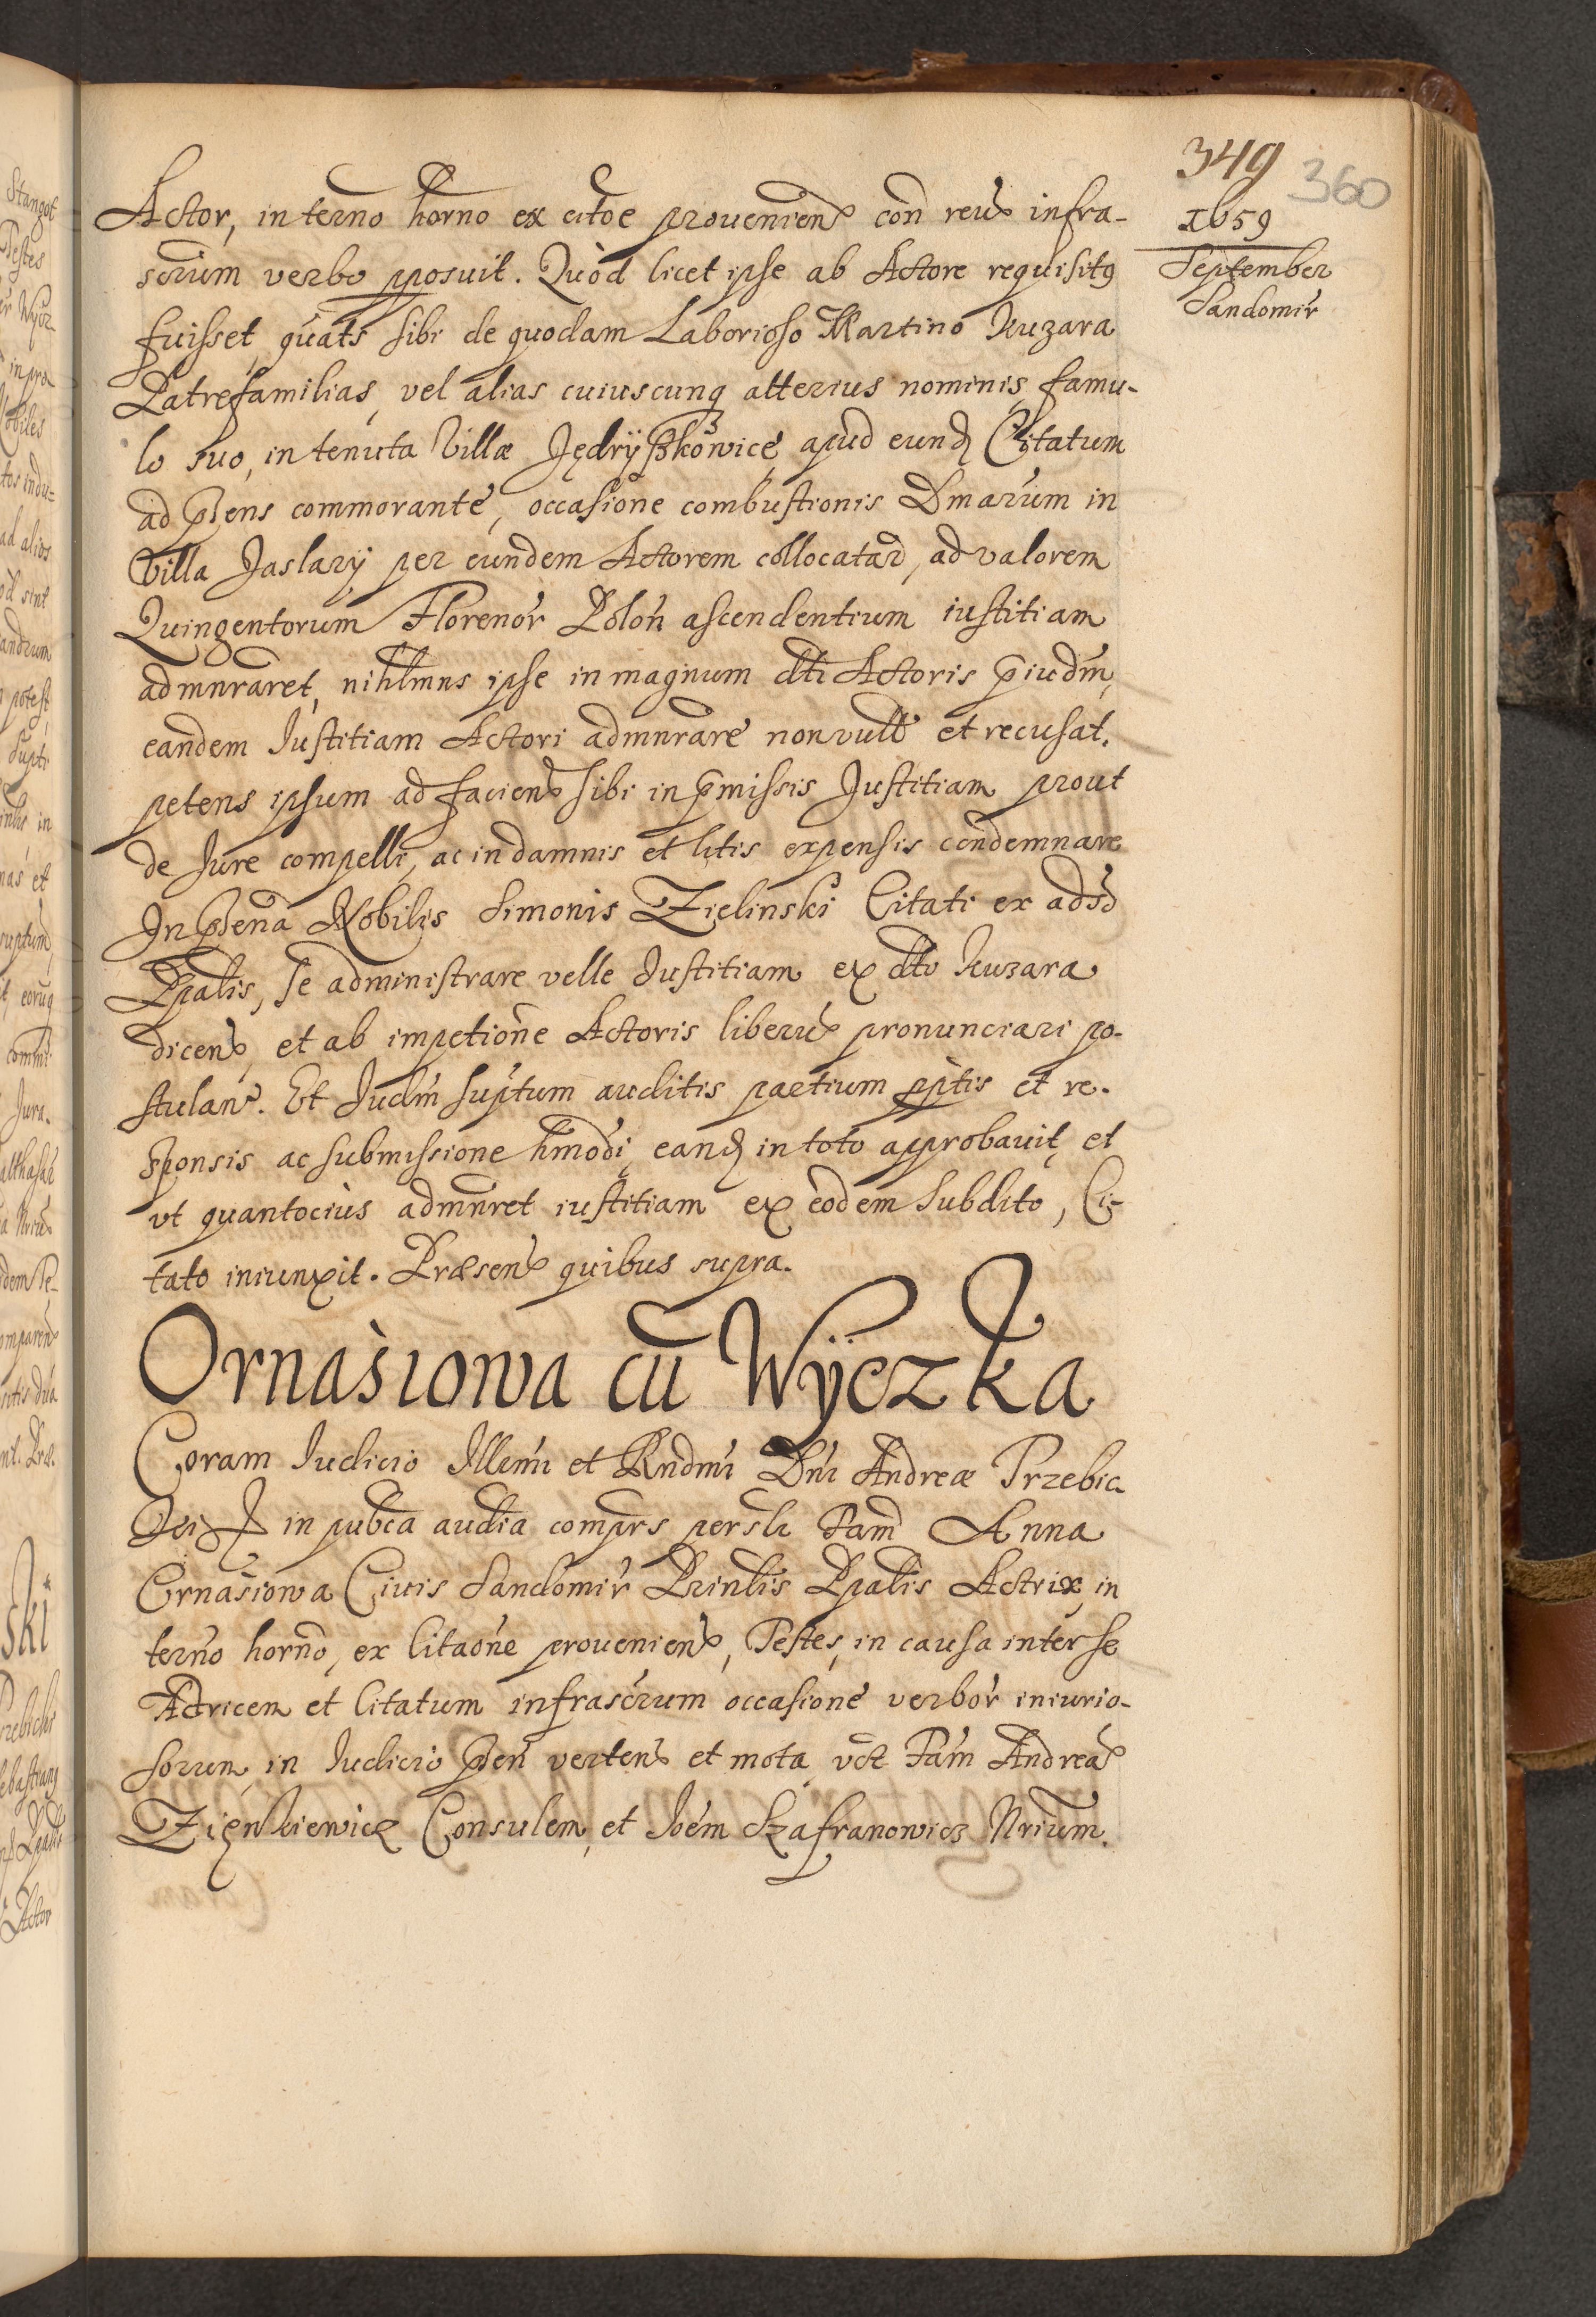 349 360
1659
September
Sandomir̃
Actor, in terño horño ex citõe proueniens coñ reus infra-
scrium verbo pposuit. Quòd licet ipse ab Actore requisitq
fuisset, quats sibi de quodam Laborioso Martino Kuzara
Patrefamilias, vel alias cuiuscunq alterius nominis, famu-
lo suo, in tenuta Villæ Jędryszkowice apud eund Citatum
ad pñens commorante, occasione combustionis Dmarum in
Villa Jaslary per eundem Actorem collocatar, ad valorem
Quingentorum Florenor Poloñ ascendentium iustitiam
admnraret, nihlmns ipse in magnum dti Actoris p̃iudm,
eandem Iustitiam Actori admnrare non vult et recusat.
petens ipsum ad faciend sibi in p̃missis Justitiam prout
de Jure compelli, ac in damnis et litis expensis condemnare
In pñena Nobilis Simonis Zielinski Citati ex adso
Ppalis, se administrare velle Iustitiam ex dto Kuzara
dicens, et ab impetiõne Actoris liberus pronunciari po-
stulans. Et Judm suptum auditis partium pptis et re-
sponsis ac submissione hmodi, eand in toto approbauit, et
vt quantocius admnret iustitiam ex eodem Subdito, Ci-
tato iniunxit. Præsens quibus supra.
Ornasiowa cũ Wÿczka
Coram Iudicio Illmi et Rndmi Dni Andreæ Trzebic
in pubca audia comprs persli Fam Anna
Ornasiowa Ciuis Sandomir̃ Prinlis Ppalis Actrix, in
terño horño, ex Citaõne proueniens, Testes, in causa inter se
Actricem et Citatum infrascrum occasione verbor iniurio-
sorum, in Iudicio pñen vertens et mota, vct Fam Andreas
Zięnkiewicz Consulem, et Joem Szafranowicz Nrium.